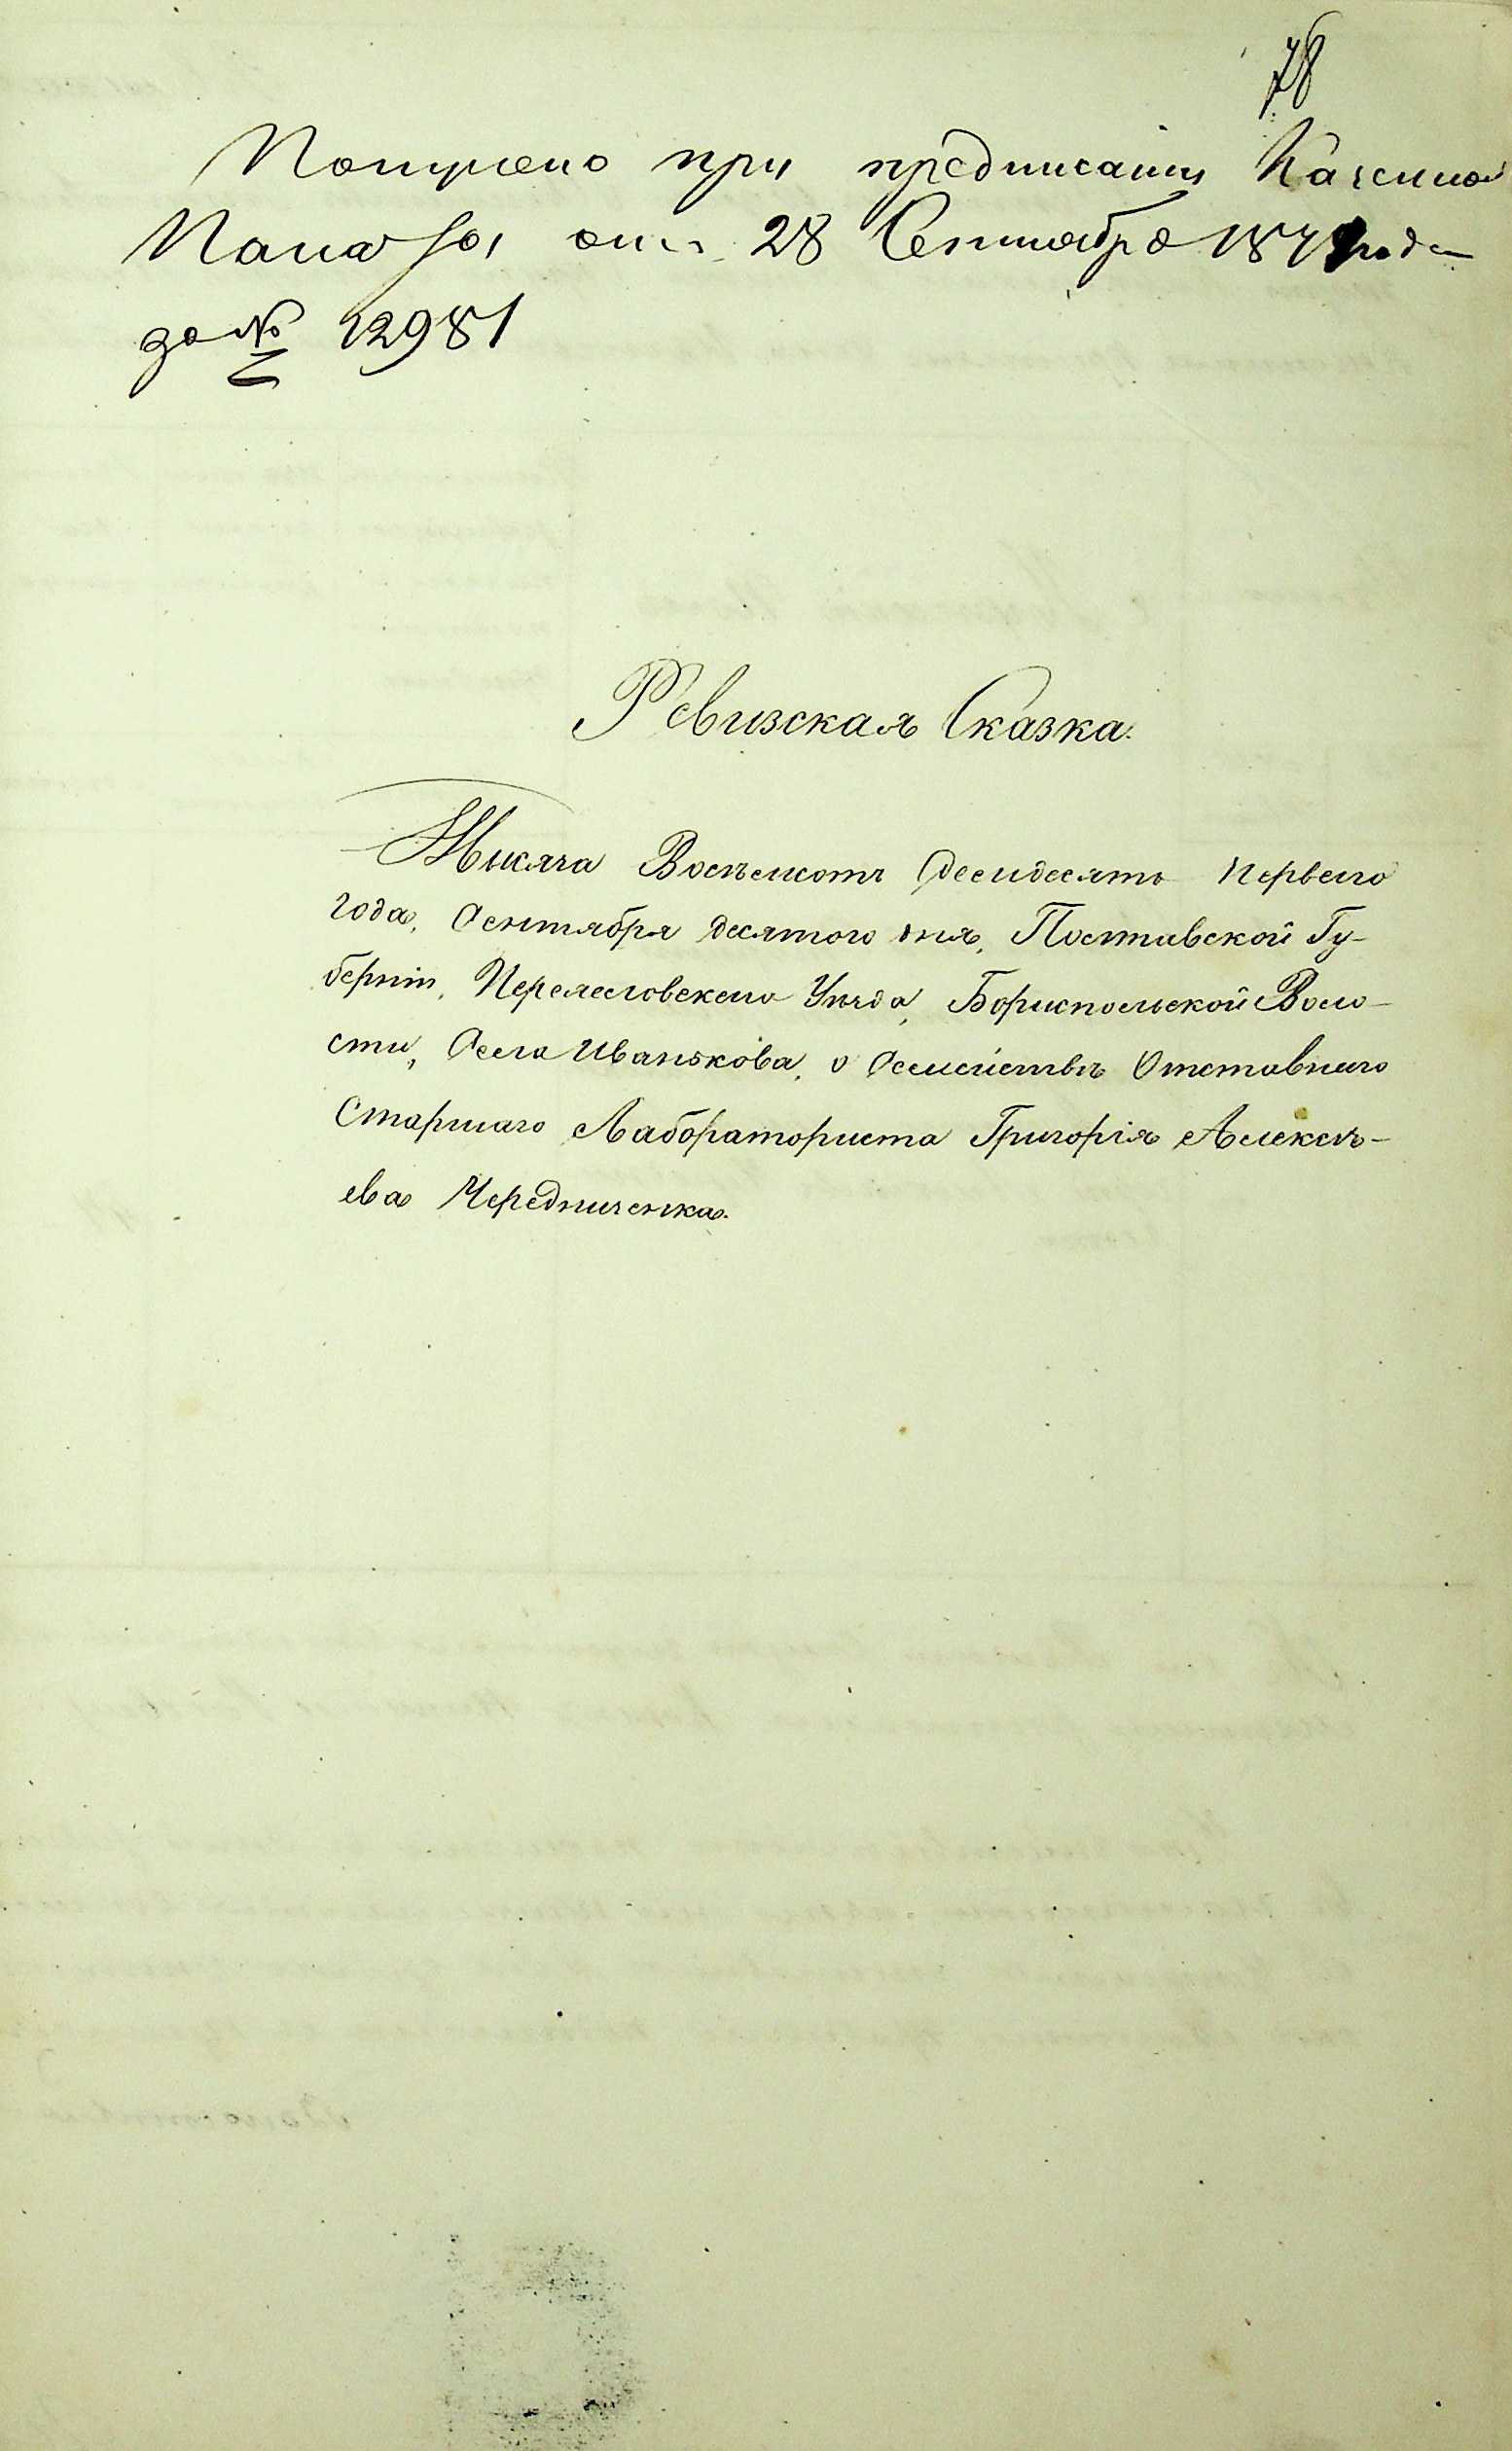 78
Получено при предписании Казенной
Палаты от 28 Сентября 1871 года
за № 12981
Ревизская Сказка.
Тысяча Восемьсотъ Семидесятъ Первого
года, Сентября десятого дня, Полтавской Гу-
берніи, Переяславского Уѣзда, Бориспольской Воло-
сти, Села Иванькова, о Семействѣ Отставнаго
Старшаго Лабораториста Григорія Алексѣ-
ева Чередниченка.